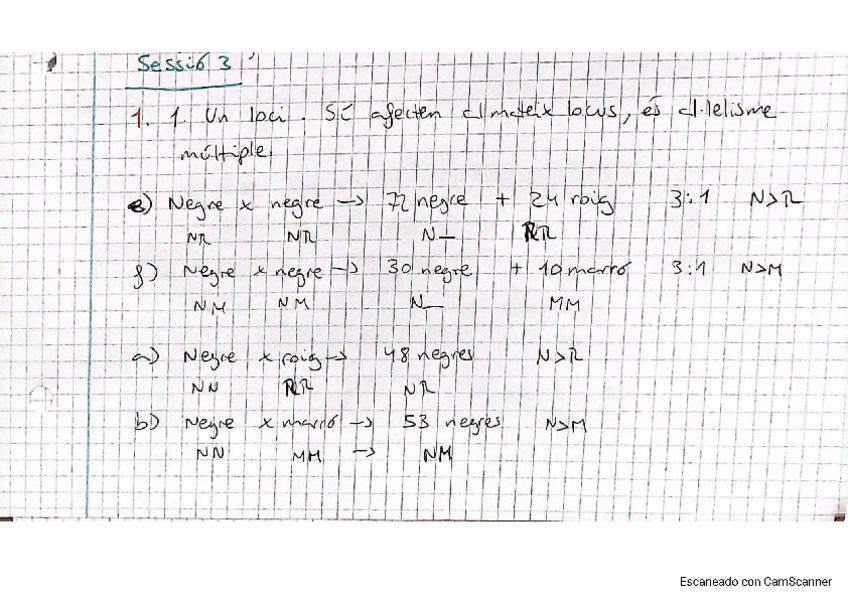 Sessió 3
1. 1. Un loci. Sí afecten al mateix locus, és al·lelisme
múltiple.
e) Negre x negre -> 72 negre + 24 roig 3:1 N>R
NR NR N_ RR
f) Negre x negre -> 30 negre + 10 marró 3:1 N>M
NM NM N_ MM
a) Negre x roig -> 48 negres N>R
NN RR NR
b) Negre x marró -> 53 negres N>M
NN MM -> NM
Escaneado con CamScanner